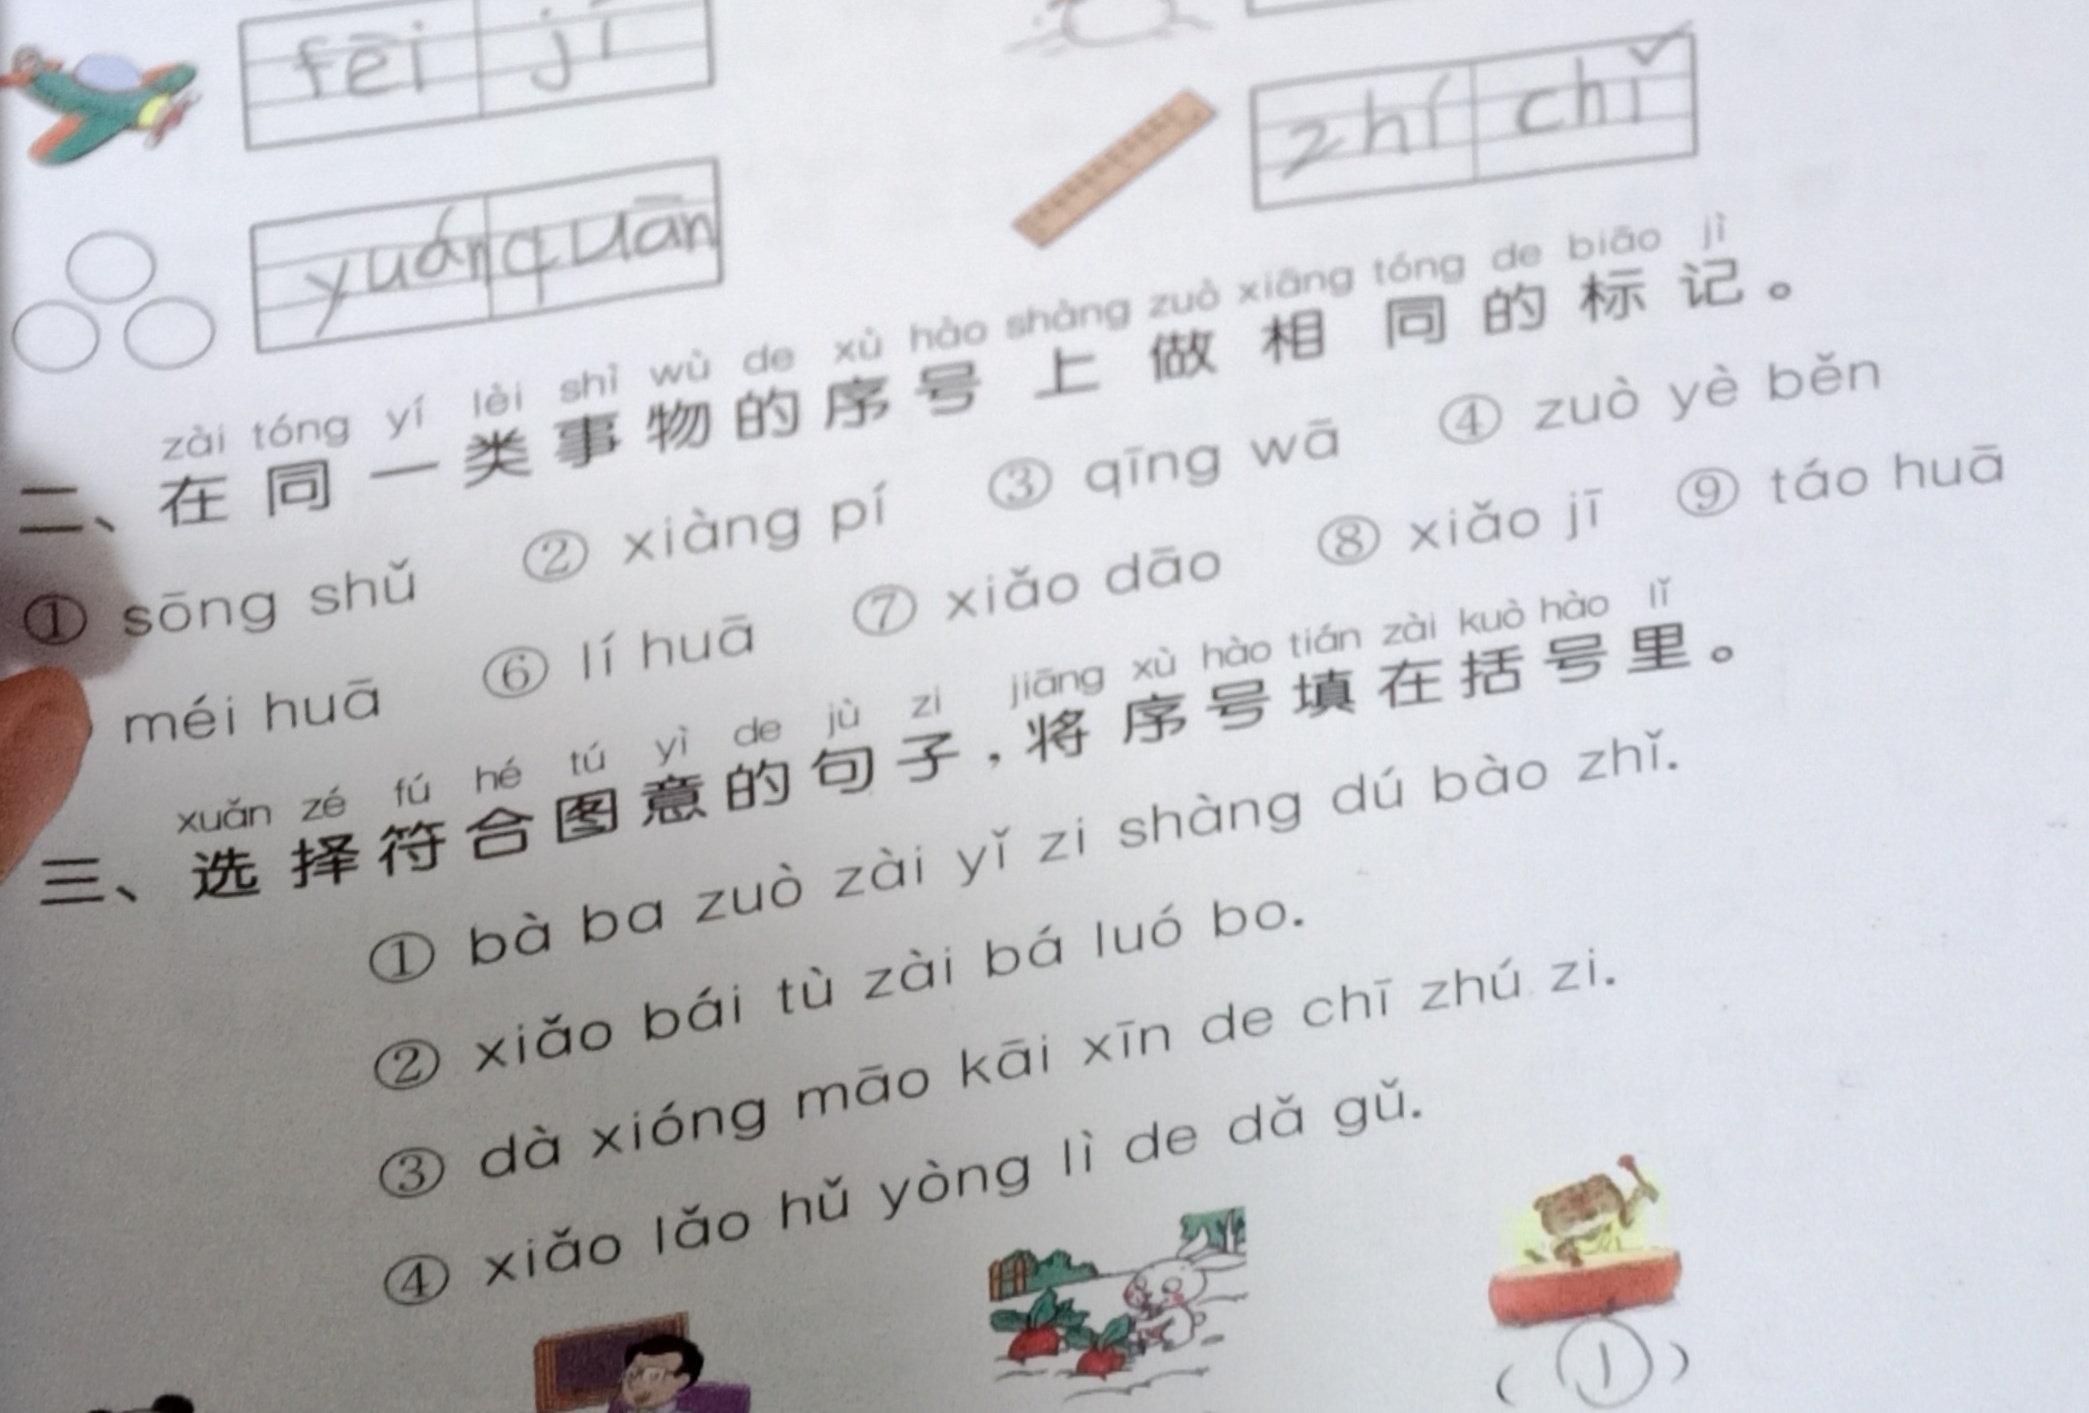 fēi jī
zhí chǐ
yuán quān
zài tóng yí lèi shì wù de xù hào shàng zuò xiāng tóng de biāo jì
二、在同一类事物的序号上做相同的标记。
① sōng shǔ ② xiàng pí ③ qīng wā ④ zuò yè běn
méi huā ⑥ lí huā ⑦ xiǎo dāo ⑧ xiǎo jī ⑨ táo huā
xuǎn zé fú hé tú yì de jù zi jiāng xù hào tián zài kuò hào lǐ
三、选择符合图意的句子,将序号填在括号里。
① bà ba zuò zài yǐ zi shàng dú bào zhǐ.
② xiǎo bái tù zài bá luó bo.
③ dà xióng māo kāi xīn de chī zhú zi.
④ xiǎo lǎo hǔ yòng lì de dǎ gǔ.
(①)